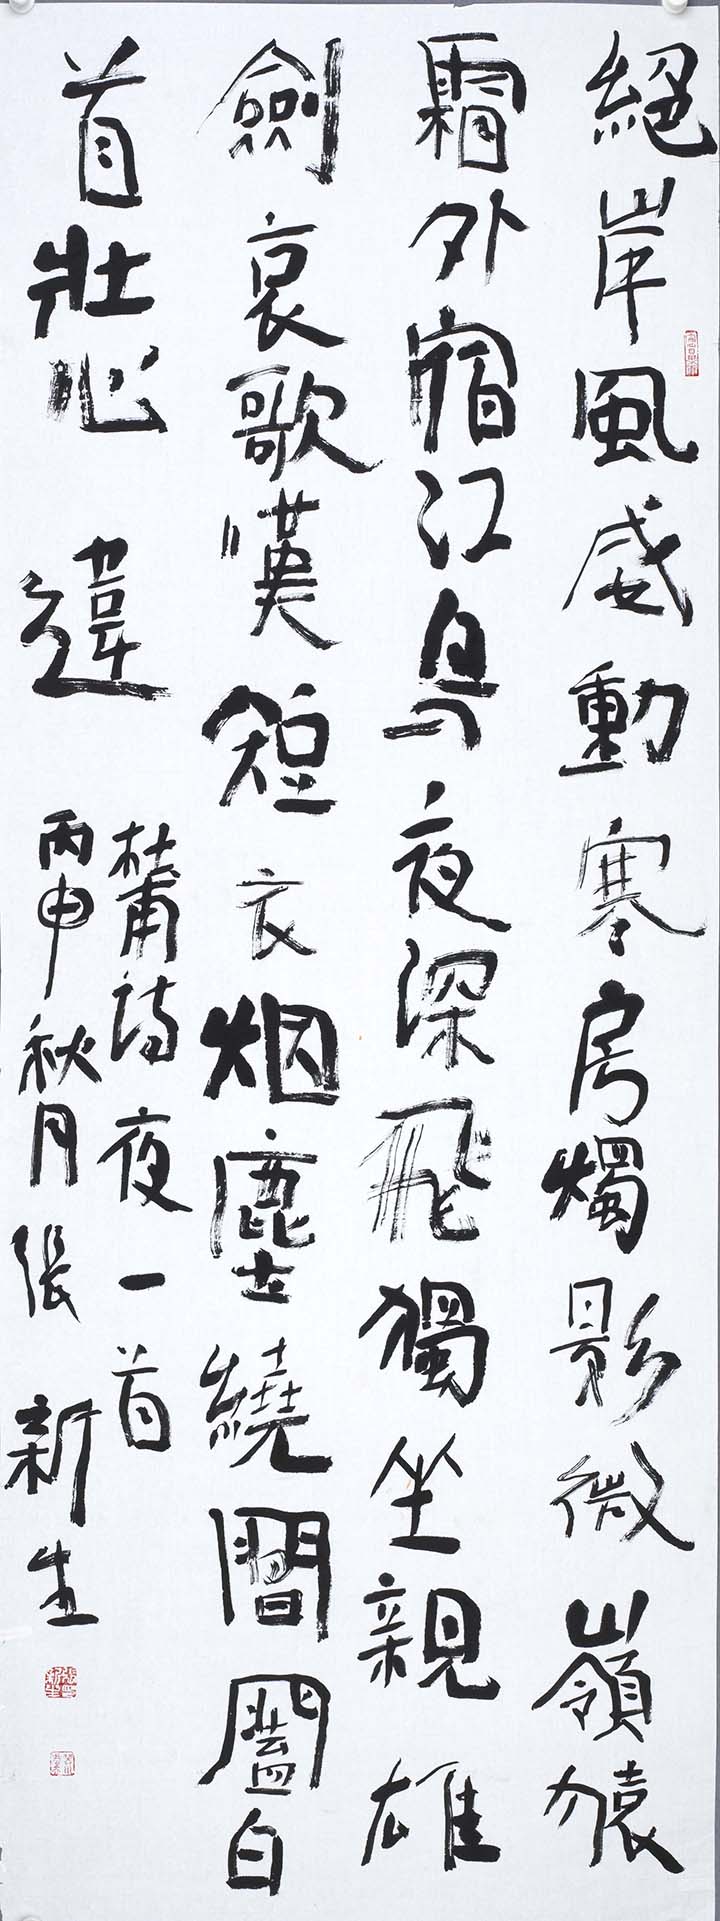 絕岸風威動寒房燭影微嶺猿
霜外宿江鳥夜深飛獨坐親雄
劍哀歌嘆短衣烟塵繞閶闔白
首壯心違
杜甫詩夜一首
丙申秋月張新生